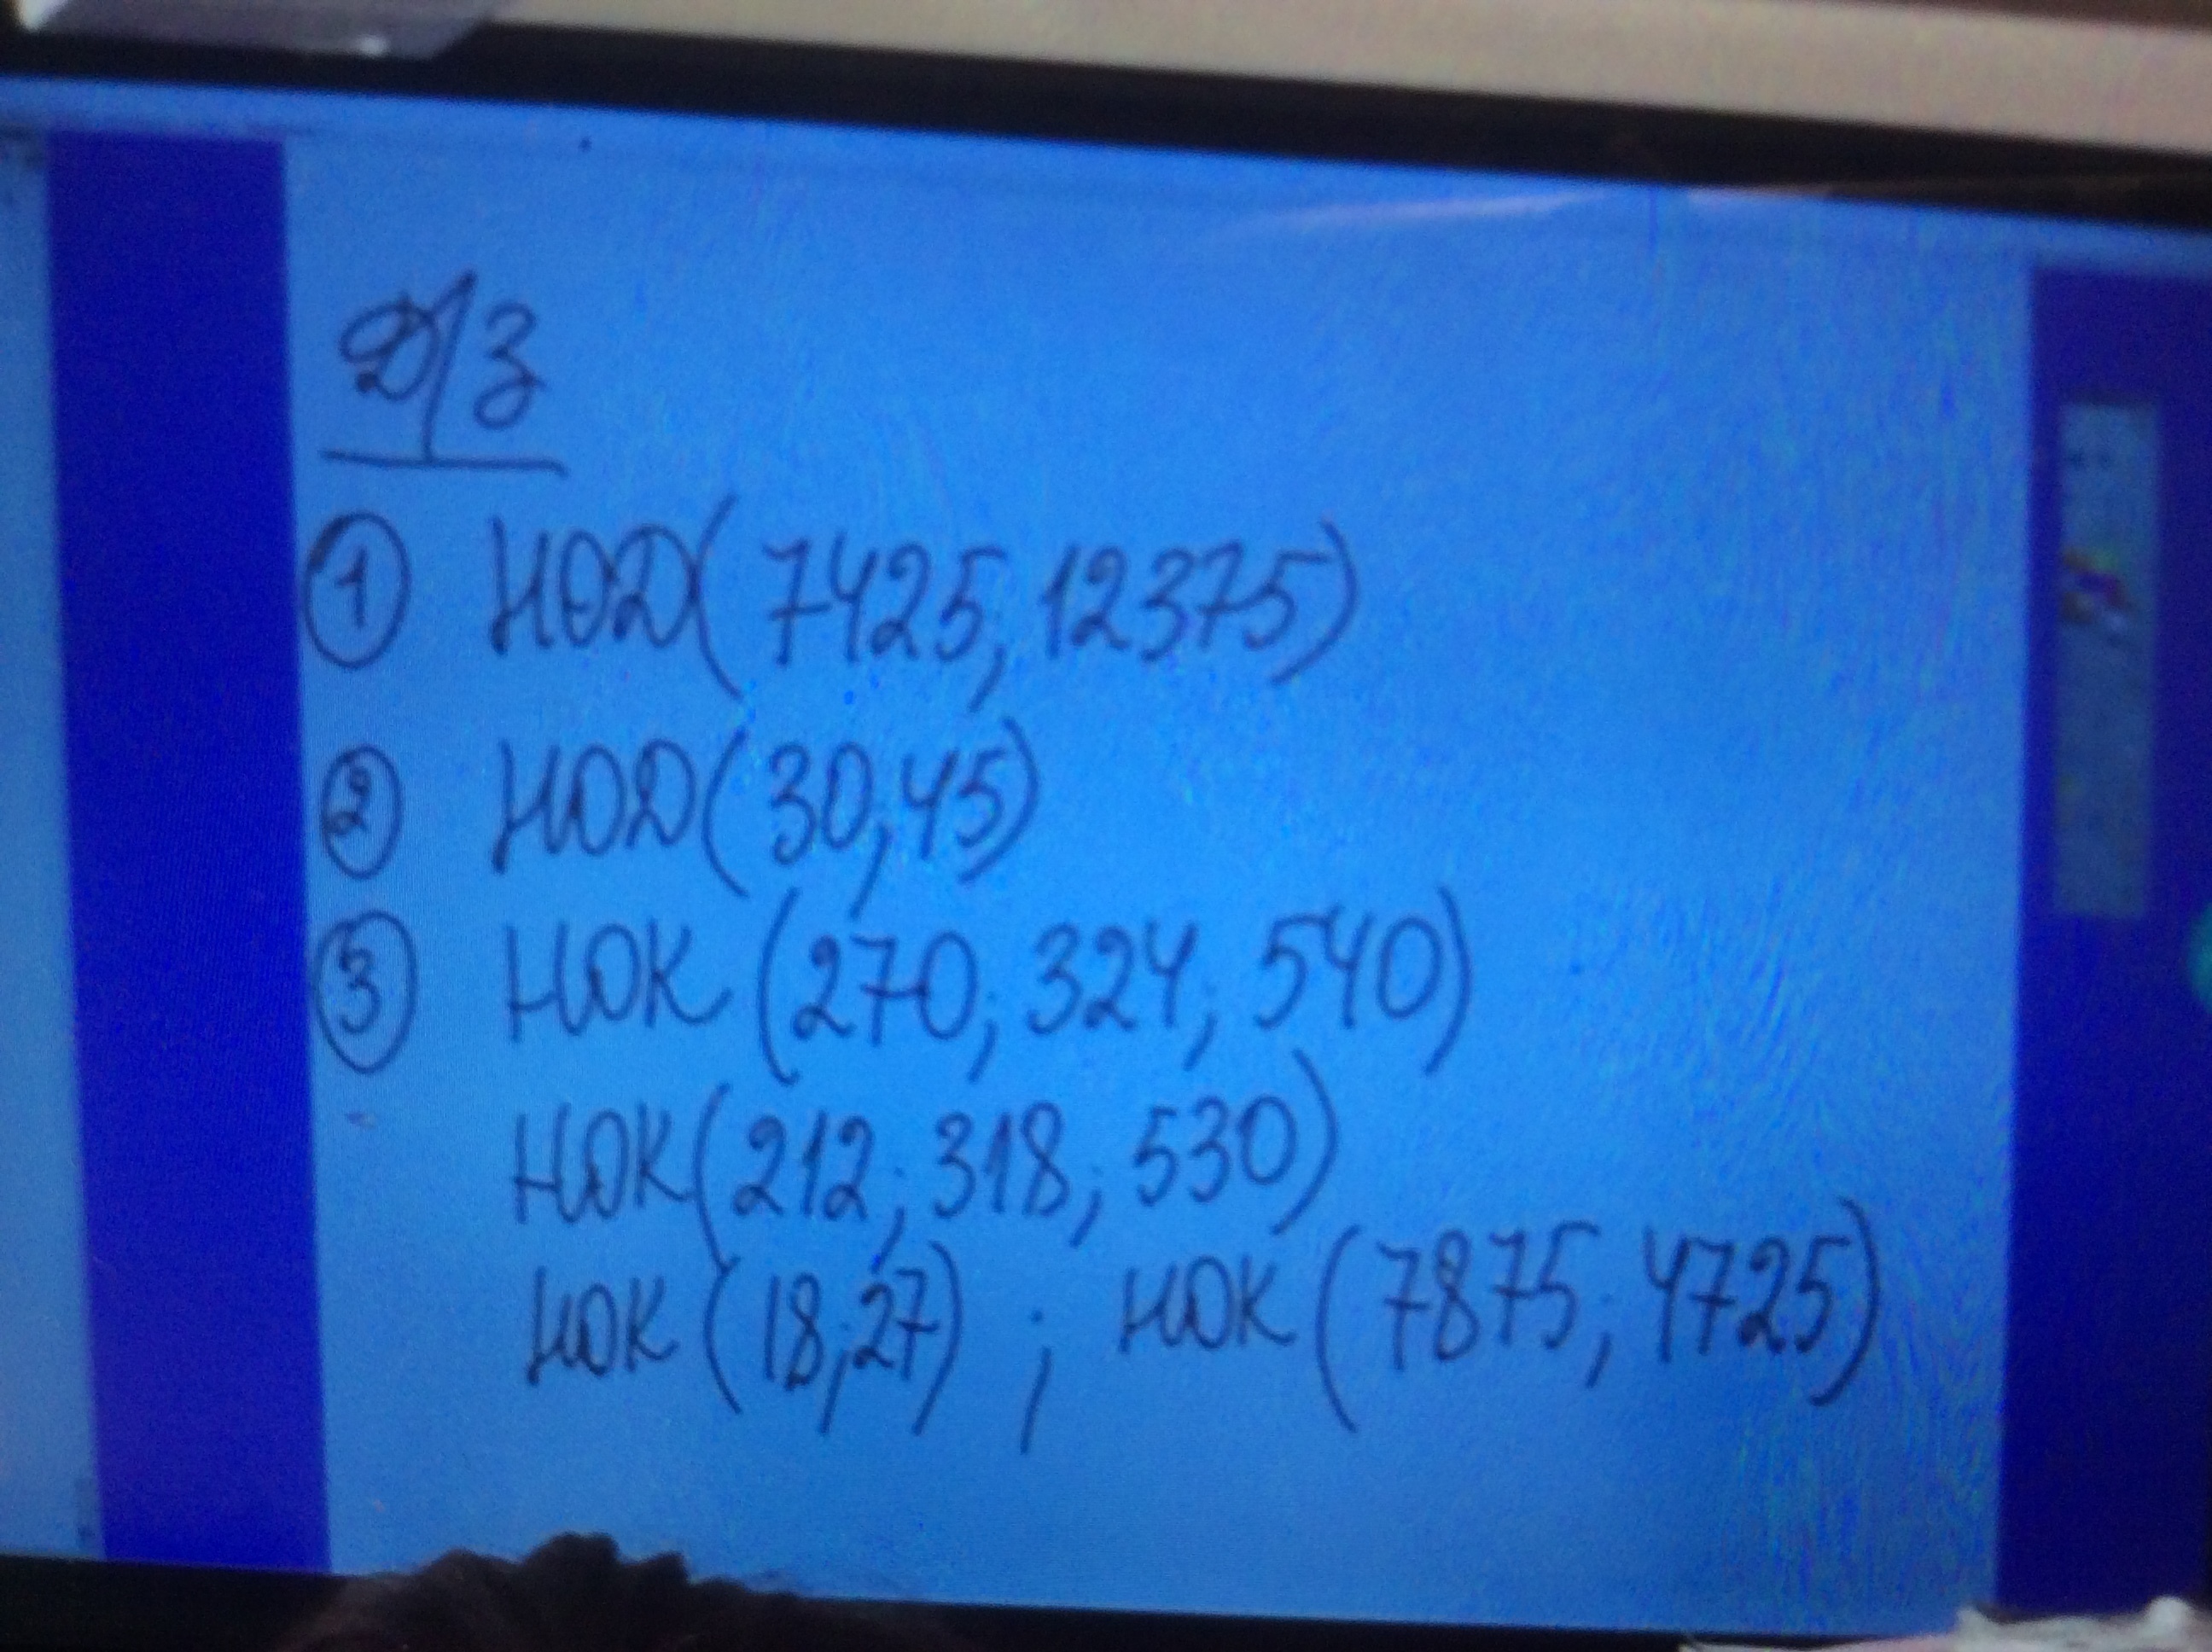 Д/З
① НОД(7425, 12375)
② НОД(30, 45)
③ НОК (270; 324; 540)
НОК(212; 318; 530)
НОК (18; 27) ; НОК (7875; 4725)